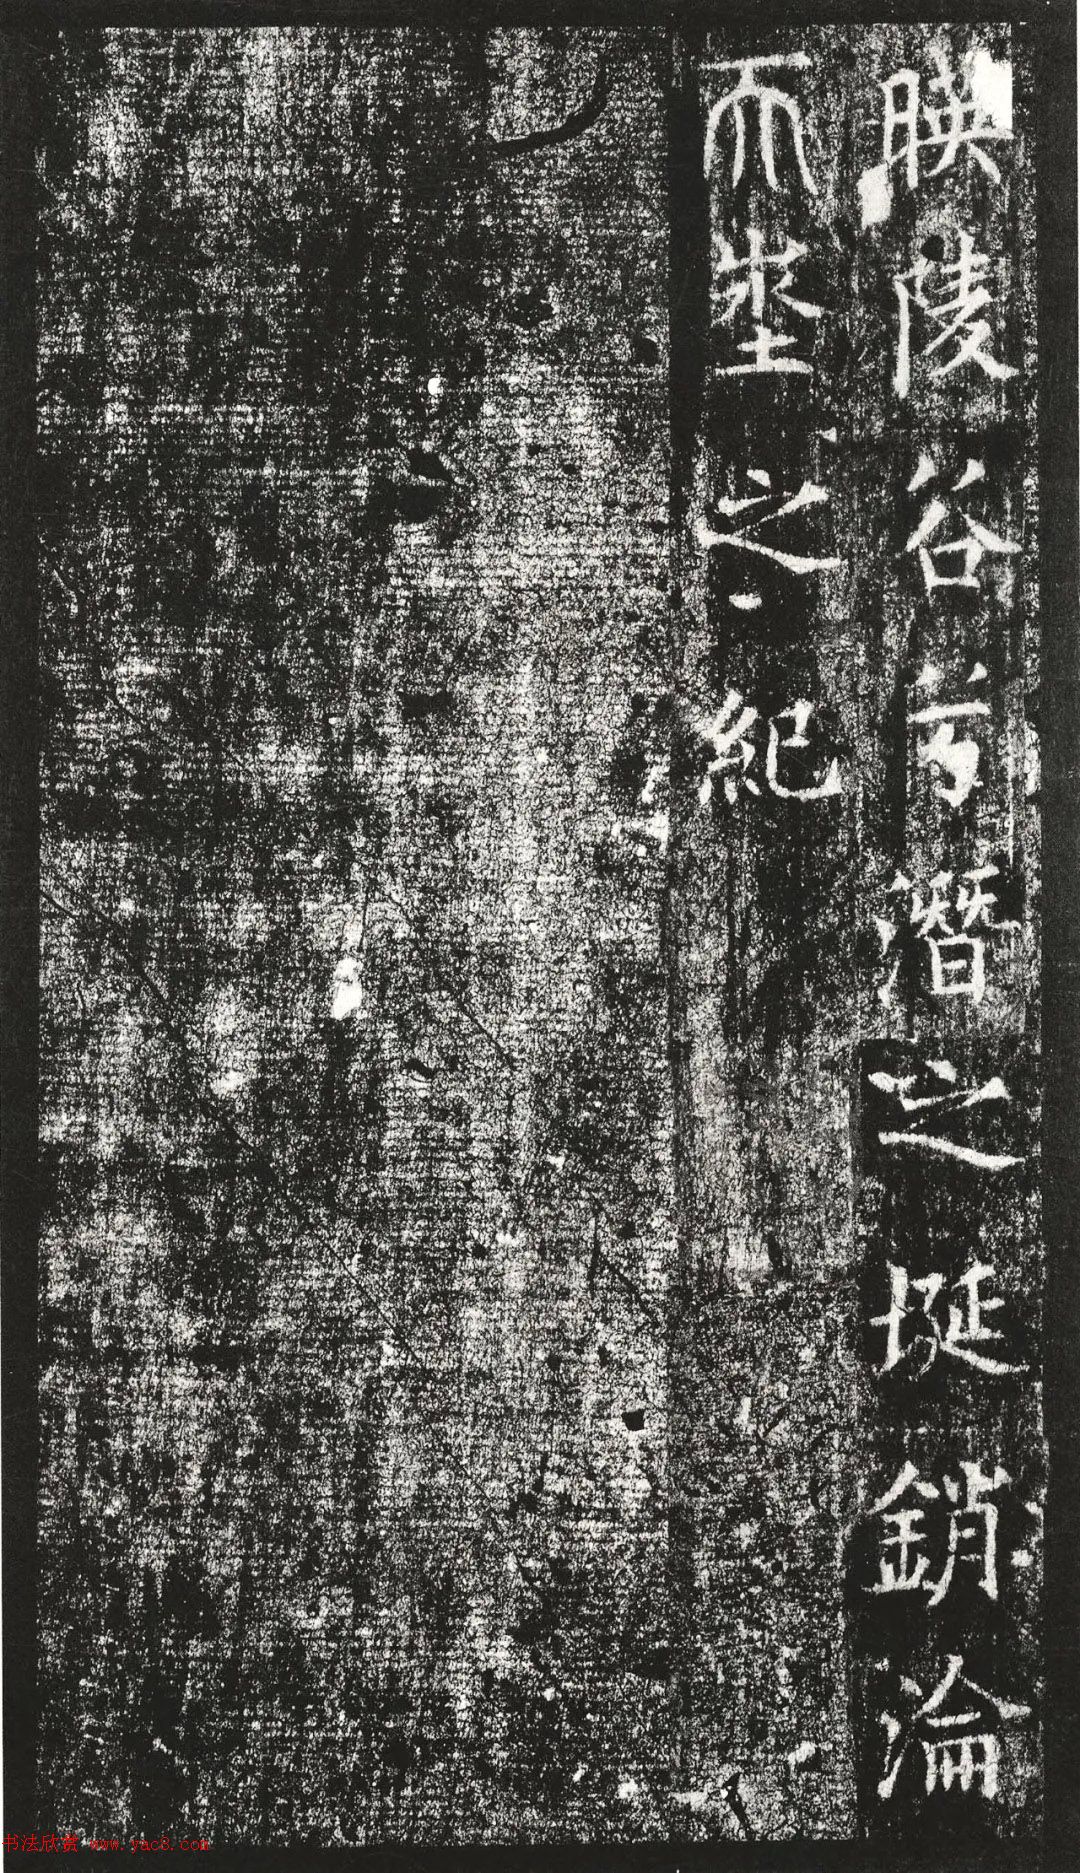 映陵谷方潛之埏銷淪
而坐之紀
书法欣赏 www.yac3.com